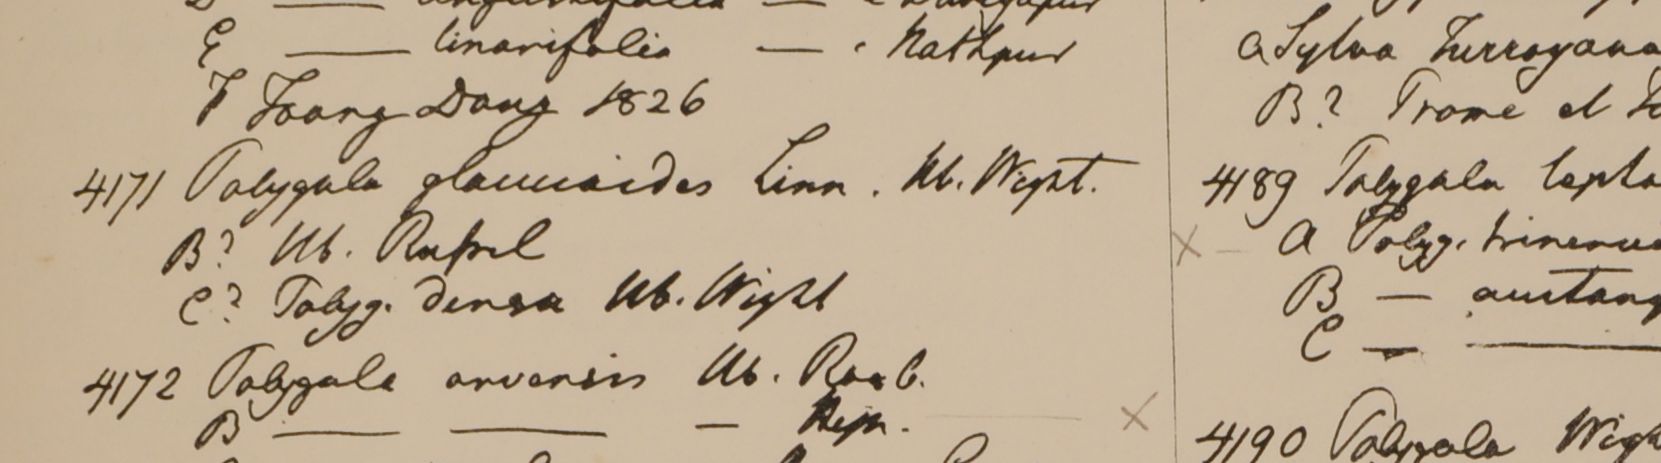 E — linarifolia — Nathpur
F Toong Dong 1826
4171 Polygala glaucoides Linn. Hb. Wight.
B? Hb. Russel
C? Polyg. densa Hb. Wight
4172 Polygala arvensis Hb. Roxb.
B — — — Heyn.
a Sylva
B? Prome et
4189 Polygala lepta
a Polyg.
B —
C — —
4190 Polygala Wigh